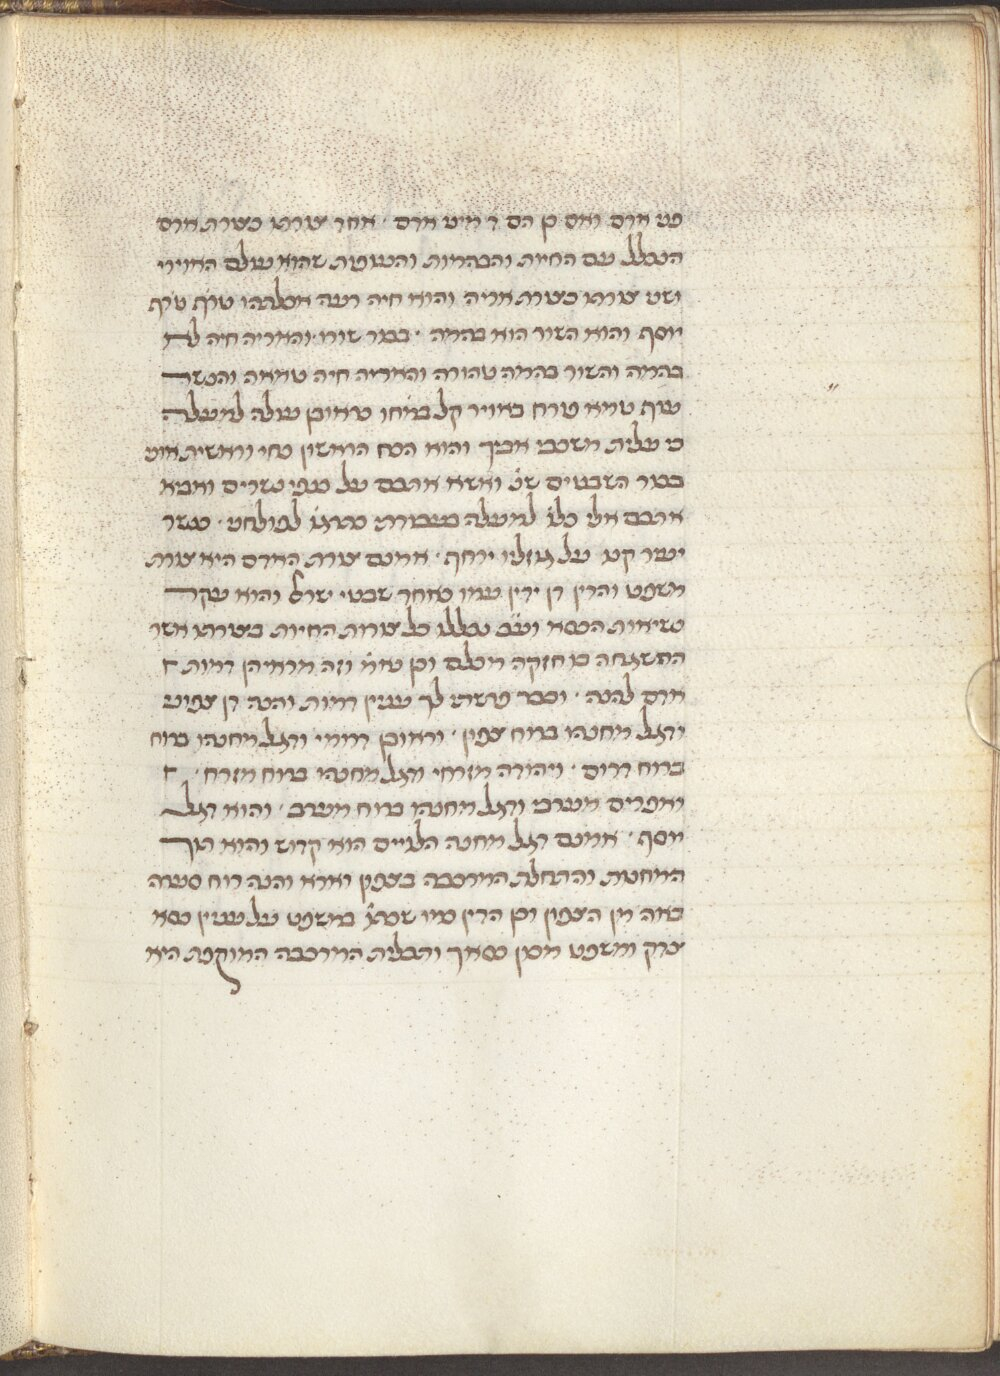 פני אדם ואם כן הם ד מיני אדם · אחר צורתו כצורת אדם
הנכלל עם החיות והבהמות והעופות שהוא עולם האוירי
ושני צורתו כצורת אריה והוא חיה רעה אכלתהו טרף טרף
יוסף והוא השור הוא בהמה · בכור שורו והאריה חיה לא
בהמה והשור בהמה טהורה והאריה חיה טמאה והנשר
עוף טמא פורח באויר קל במחו ראובן עולה למעלה
כי עלית משכבי אביך והוא הכח הראשון כחי וראשית אוני
בכור השבטים שנ ואשא אתכם על כנפי נשרים ואביא
אתכם אלי כלו למעלה
ישר קנו על גוזליו ירחף · אמנם צורת האדם היא צורת
משפט והדין דן ידין עמו כאחד שבטי ישראל והוא עקר
נשיאות הכסא ובו נכללו כל צורות החיות בצורתו אשר
ההשגחה בו חזקה מכלם וכן וזה מראיהן דמות
אדם להנה · וכבר פרשתי לך ענין דמות והנה דן צפוני
ודגל מחנהו ברוח צפון · וראובן דרומי ודגל מחנהו ברוח
ברוח דרום · ויהודה מזרחי ודגל מחנהו ברוח מזרח ·
ואפרים מערבי ודגל מחנהו ברוח מערב · והוא דגל
יוסף · אמנם דגל מחנה הלויים הוא קדוש והוא תוך
המחנות והתחלת המרכבה בצפון וארא והנה רוח סערה
באה מן הצפון וכן הדין על ענין כסא
צדק ומשפט מכון כסאך ותכלית המרכבה המוקפת היא